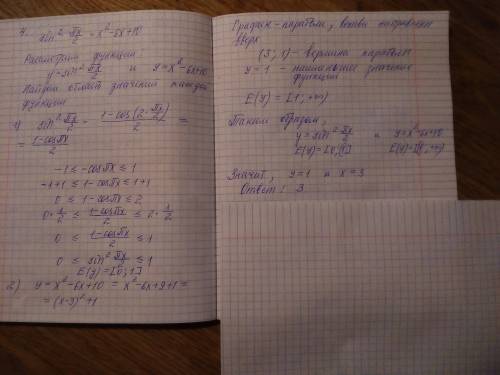 4. sin² πx/2 = x² - 6x + 10
Рассмотрим функции
y = sin² πx/2 и y = x² - 6x + 10
Найдём область значений каждой
функции
1) sin² πx/2 = (1 - cos(2·πx/2))/2 =
= (1 - cosπx)/2
-1 ≤ -cosπx ≤ 1
-1+1 ≤ 1 - cosπx ≤ 1+1
0 ≤ 1 - cosπx ≤ 2
0·1/2 ≤ (1 - cosπx)/2 ≤ 2·1/2
0 ≤ (1 - cosπx)/2 ≤ 1
0 ≤ sin² πx/2 ≤ 1
E(y) = [0; 1]
2) y = x² - 6x + 10 = x² - 6x + 9 + 1 =
= (x-3)² + 1
График - парабола, ветви направлены
вверх
(3; 1) - вершина параболы
y = 1 - наименьшее значение
функции
E(y) = [1; +∞)
Таким образом,
y = sin² πx/2 и y = x² - 6x + 10
E(y) = [0; 1] E(y) = [1; +∞)
Значит, y = 1 и x = 3
Ответ: 3